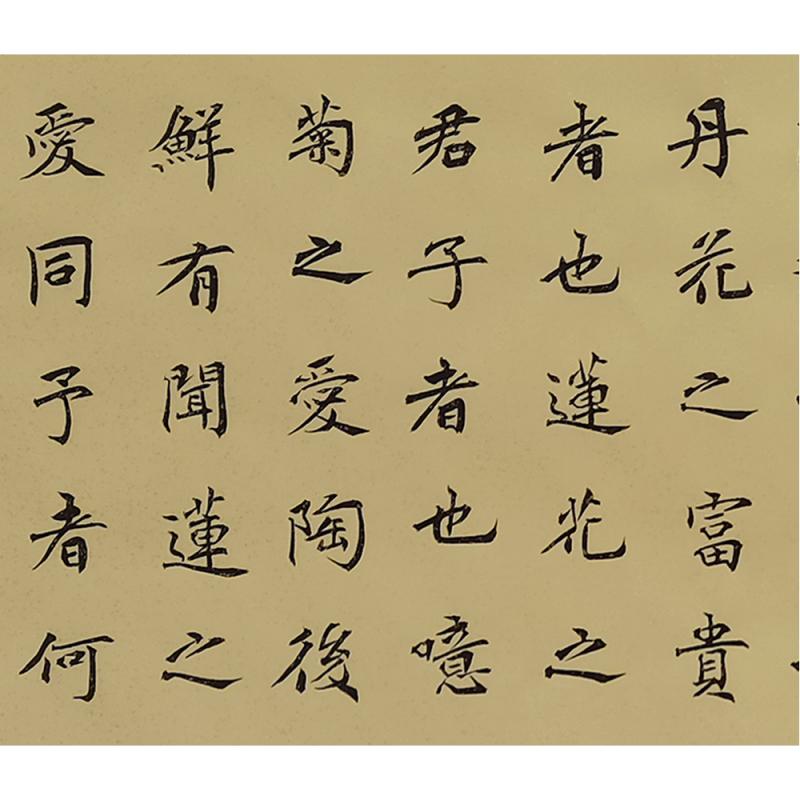 丹花之富貴
者也蓮花之
君子者也噫
菊之愛陶後
鮮有聞蓮之
愛同予者何